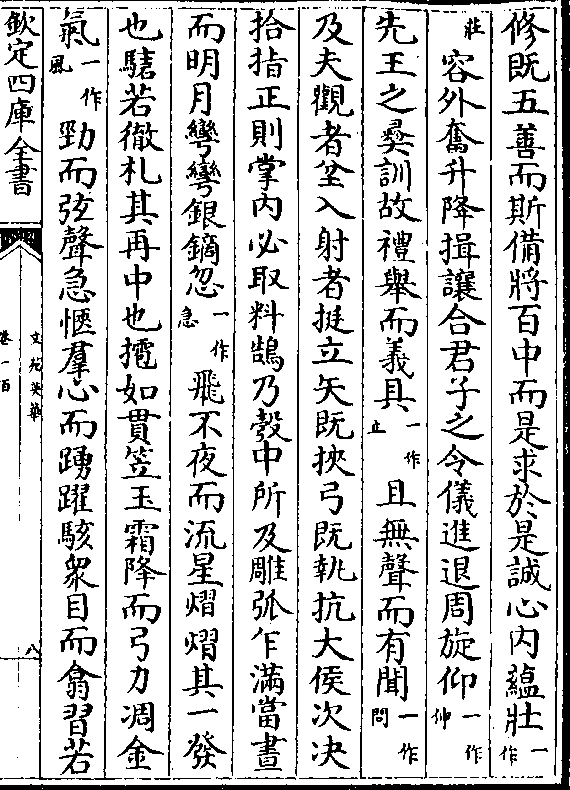 修既五善而斯備將百中而是求於是誠心内蘊壯一作
莊容外奮升降揖讓合君子之令儀進退周旋仰一作仲
先王之彜訓故禮舉而義具一作止且無聲而有聞一作問
及夫觀者坌入射者挺立矢既挾弓既執抗大侯次决
拾指正則掌内必取料鵠乃彀中所及雕弧乍滿當晝
而明月彎彎銀鏑忽一作急飛不夜而流星熠熠其一發
也驣若徹札其再中也㩁如貫笠玉霜降而弓力凋金
氣一作風勁而弦聲急愜羣心而踴躍駭衆目而翕習若
欽定四庫全書
文苑英華
卷一百
八